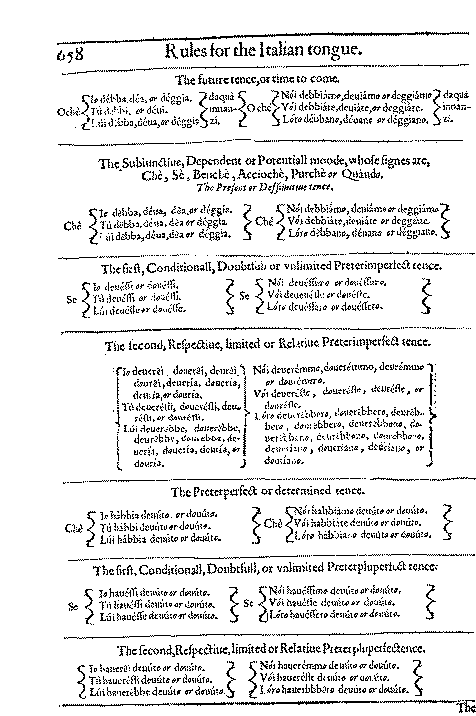 658 Rules for the Italian tongue.
The future tence, or time to come.
Io débba, déa, or déggia. daquà Nói debbiámo, deuiámo or deggiámo daquà
Ochè Tù débbi, or déui. innan- Ochè Vói debbiáte, deuiáte, or deggiáte. innan-
Lúi débba, déua, or déggia zi. Lóro débbano, déuano or déggiano. zi.
The Subiunctiue, Dependent or Potentiall moode, whose signes are,
Chè, Sè, Benchè, Acciochè, Purchè or Quándo.
The Present or Deffinitiue tence.
Io débba, déua, déa, or déggia. Nói debbiámo, deuiámo or deggiámo
Chè Tù débba, déua, déa or déggia. Chè Vói debbiáte, deuiáte or deggiáte.
Lúi débba, déua, déa or déggia. Lóro débbano, déuano or déggiano.
The first, Conditionall, Doubtfull or vnlimited Preterimperfect tence.
Io deuéssi or douéssi. Nói deuéssimo or douéssimo.
Se Tù deuéssi or douéssi. Se Vói deueuéste or douéste.
Lúi deuésse or douésse. Lóro deuéssero or douéssero.
The second, Respectiue, limited or Relatiue Preterimperfect tence.
Io deuerèi, douerèi, deurèi Nói deuerémmo, douerémmo, deurémmo
dourèi, deuería, douería, or dourémmo.
deuría, or douría. Vói deueréste, doueréste, deuréste, or
Tù deuerésti, douerésti, deu- douréste.
résti, or dourésti. Lóro deuerébbero, douerébbero, deuréb-
Lúi deuerébbe, douerébbe, bero, dourébbero, deuerébbono, do-
deurébbe, dourébbe, de- uerébbono, deurébbono, dourébbono,
uería, douería, deuría, or deueríano, doueríano, deuríano, or
douría. douríano.
The Preterperfect or determined tence.
Io hábbia deuúto, or douúto. Nói habbiámo deuúto or douúto.
Chè Tù hábbi deuúto or douúto. Chè Vói habbiáte deuúto or douúto.
Lúi hábbia deuúto or douúto. Lóro hábbiano deuúto or douúto.
The first, Conditionall, Doubtfull, or vnlimited Preterpluperfect tence.
Io hauéssi deuúto or douúto. Nói hauéssimo deuúto or douúto.
Se Tù hauéssi deuúto or douúto. Se Vói hauéste deuúto or douúto.
Lúi hauésse deuúto or douúto. Lóro hauéssero deuúto or douúto.
The second, Respectiue, limited or Relatiue Preterpluperfectence.
Io hauerèi deuúto or douúto. Nói hauerémmo deuúto or douúto.
Tù hauerésti deuúto or douúto. Vói haueréste deuúto or douúto.
Lúi hauerebbe deuúto or douúto. Lóro hauerébbero deuúto or douúto.
The